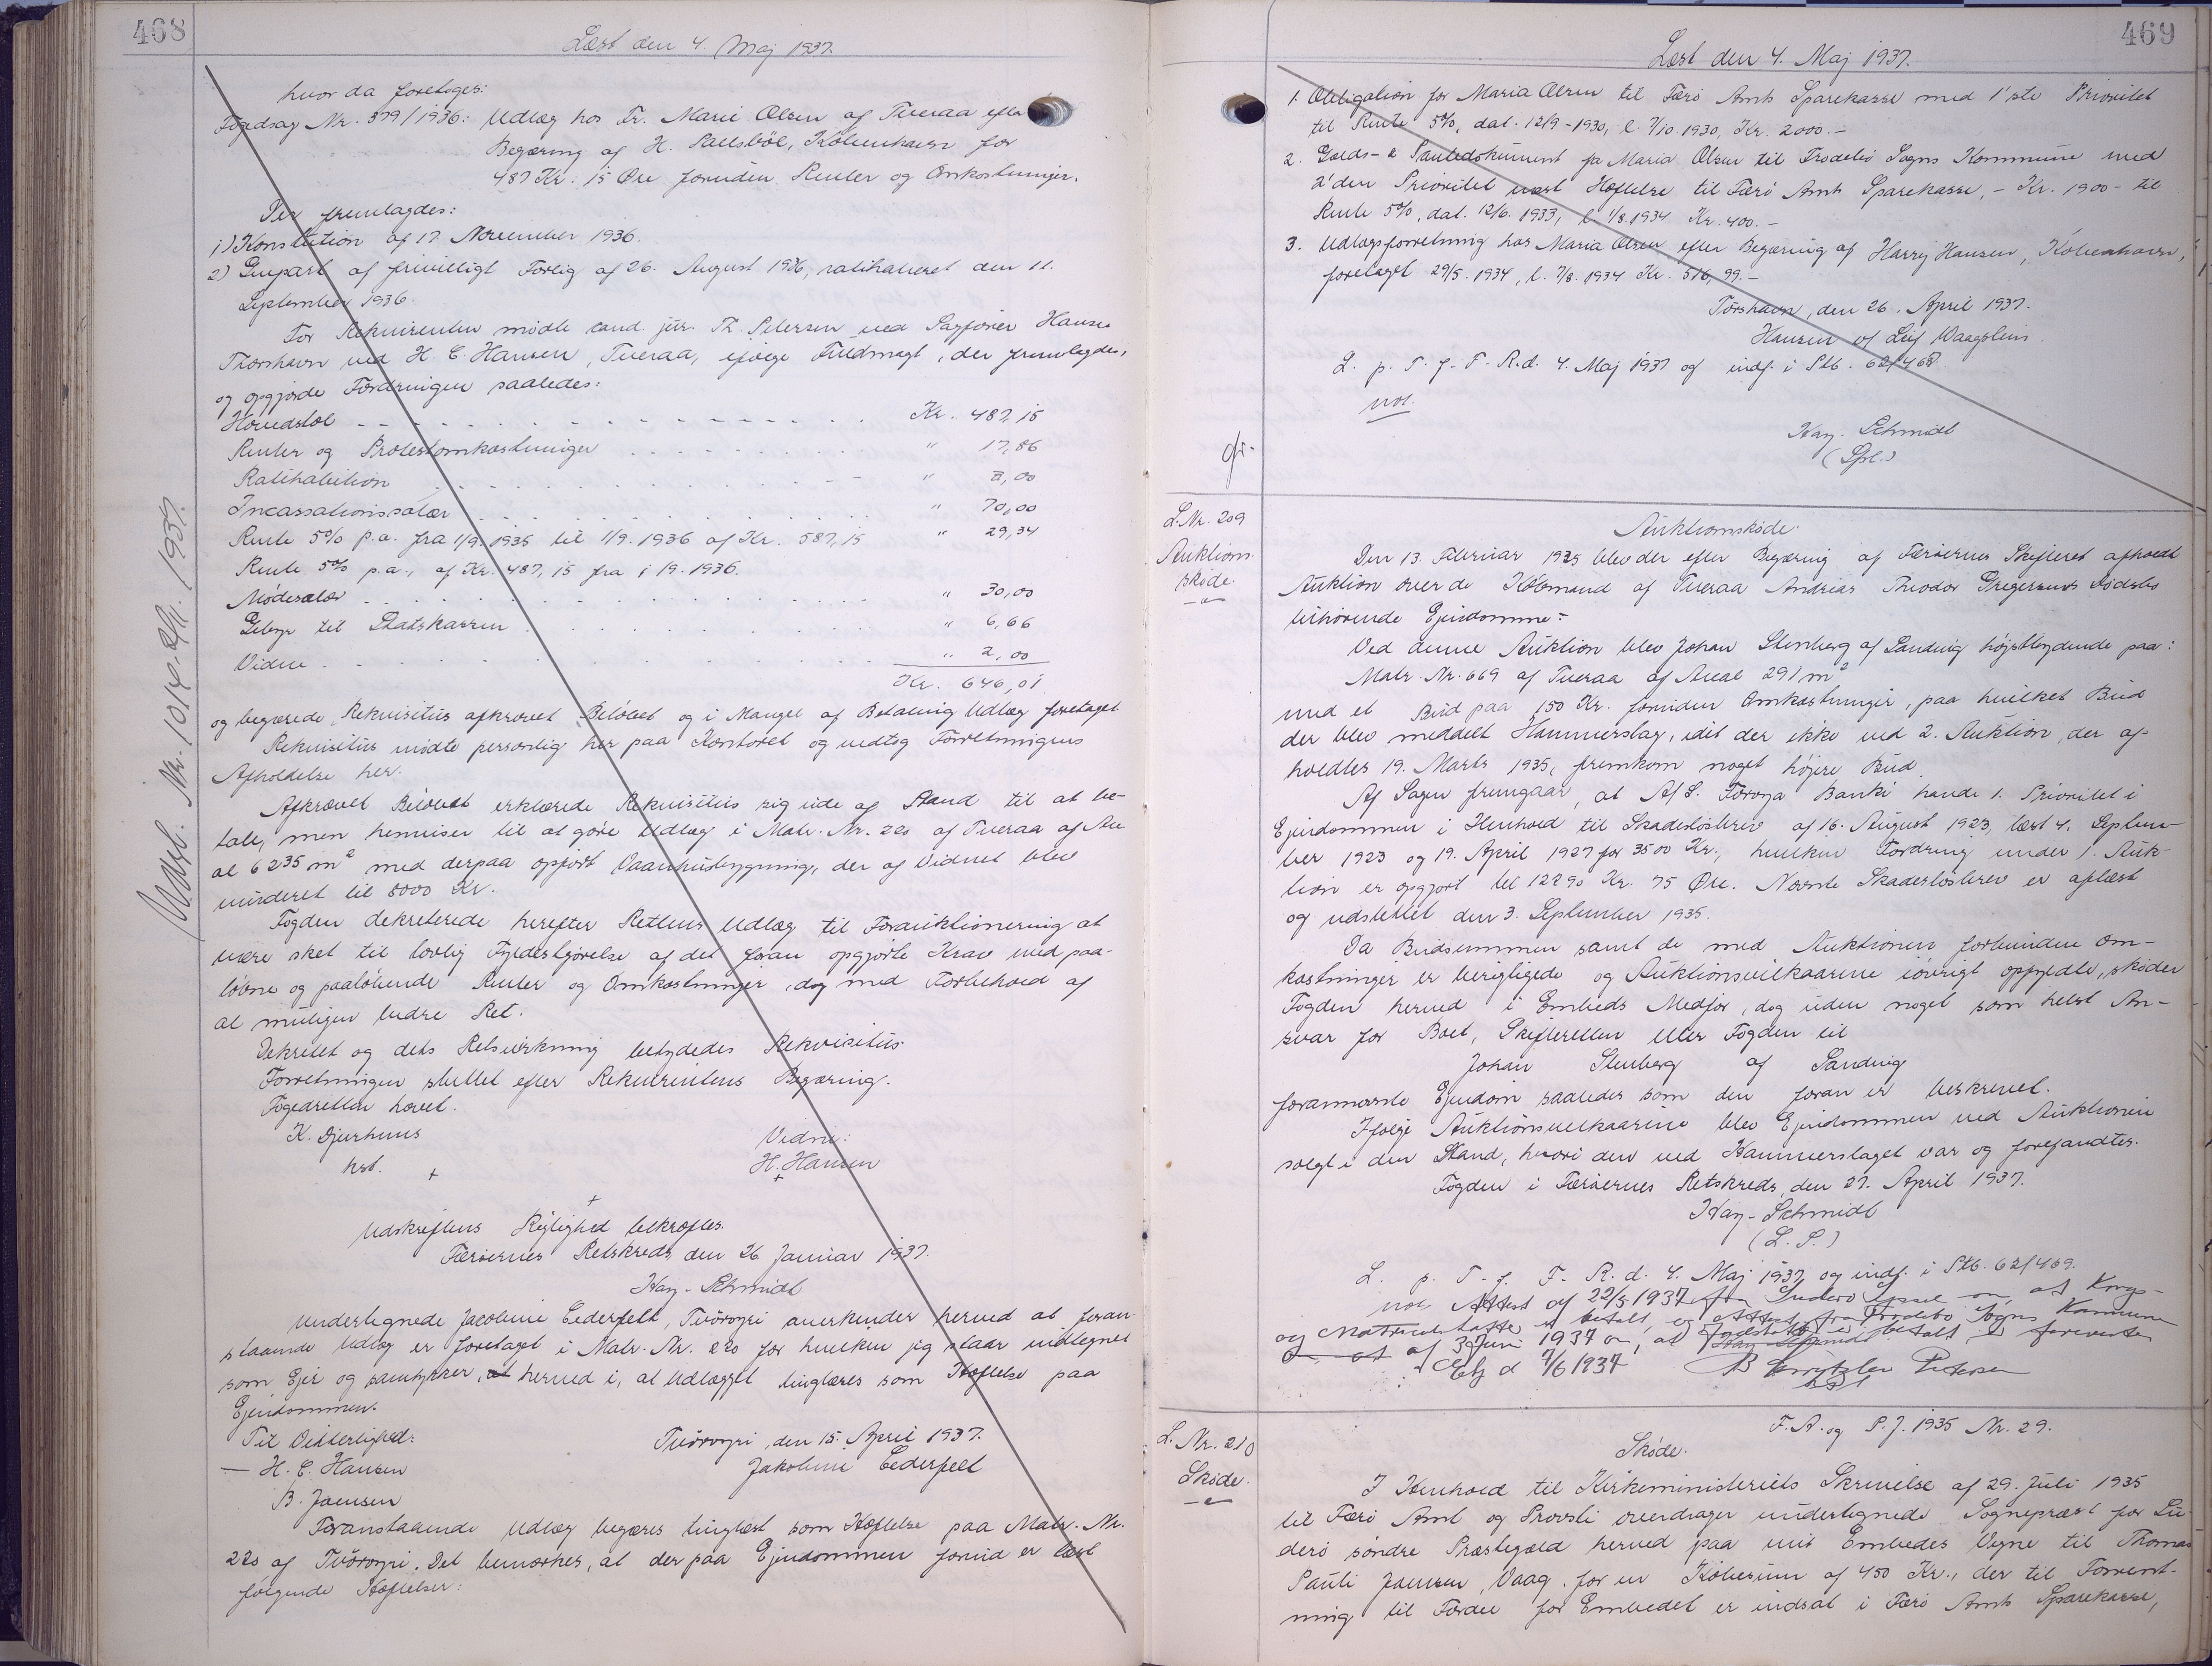 468
Læst den 4. Maj 1937.
hvor da foretoges:
Fogedsag Nr. 379/1936: Udlæg hos Fr. Marie Olsen af Tveraa efter
Begæring af H. Palsböl, København for
487 Kr. 15 Øre foruden Renter og Omkostninger.
Der fremlagdes:
1) Konstitution af 17 November 1936.
2) Genpart af frivilligt Forlig af 26. August 1936, ratihaberet den 11.
September 1936.
For Rekvirenten mødte cand. jur. Th. Petersen ved Sagfører Hansen
Thorshavn ved H. C. Hansen, Tveraa, ifølge Fuldmagt, der fremlagdes,
og opgjorde Fordringen saaledes:
Hovedstol Kr. 487,15
Renter og Protestomkostninger " 17,86
Ratihabition " 3,00
Incassationssalær " 70,00
Rente 5% p.a. fra 1/9. 1935 til 1/9. 1936 af Kr. 587,15 " 29,34
Rente 5% p.a., af Kr. 487,15 fra 1/9. 1936.
Mødesalær " 30,00
Gebyr til Statskassen " 6,66
Vidne " 2,00
Kr. 646,01
og begærede Rekvisitus afkrævet Beløbet og i Mangel af Betaling Udlæg foretaget
Rekvisitus mødte personlig her paa Kontoret og vedtog Forretningens
Afholdelse her.
Afkrævet Beløbet erklærede Rekvisitus sig ude af Stand til at be-
tale, men henviser til at gøre Udlæg i Matr. Nr. 220 af Tveraa af Are
al 6235 m² med derpaa opført Vaanhusbygning, der af Vidnet blev
vurderet til 5000 Kr.
Fogden dekreterede herefter Rettens Udlæg til Forauktionering at
være sket til lovlig Fyldestgørelse af det foran opgjorte Krav med paa-
løbne og paaløbende Renter og Omkostninger, dog med Forbehold af
al muligen bedre Ret.
Dekretet og dets Retsvirkning betydedes Rekvisitus.
Forretningen sluttet efter Rekvirentens Begæring.
Fogedretten hævet.
K. Djurhuus Vidne:
kst. H. Hansen
Udskriftens Rigtighed bekræftes.
Færøernes Retskreds, den 26 Januar 1937.
Kay-Schmidt
Undertegnede Jacobine Cederfelt, Tvöroyri anerkender herved at foran-
staaende Udlæg er foretaget i Matr. Nr. 220 for hvilken jeg staar indtegnet
som Ejer og samtykker herved i, at Udlægget tinglæses som Hæftelse paa
Ejendommen.
Til Vitterlighed: Tvöroyri, den 15. April 1937.
— H. C. Hansen Jakobine Cederfelt
B. Joensen
Foranstaaende Udlæg begæres tinglæst som Hæftelse paa Matr. Nr.
220 af Tvöroyri. Det bemærkes, at der paa Ejendommen forud er læst
følgende Hæftelser:
Matr. Nr. 1014. 1937.
469
Læst den 4. Maj 1937.
1. Obligation for Maria Olsen til Færø Amts Sparekasse med 1'ste Prioritet
til Rente 5%, dat. 12/9-1930, l. 7/10.1930, Kr. 2000.-
2. Gælds- & Pantedokument fra Maria Olsen til Frodebø Sogns Kommune med
2'den Prioritet næst Hæftelse til Færø Amts Sparekasse, - Kr. 1900- til
Rente 5%, dat. 12/6. 1933, l. 1/8.1934 Kr. 400.-
3. Udlægsforretning hos Maria Olsen efter Begæring af Harry Hansen, København,
foretaget 29/5. 1934, l. 7/8. 1934 Kr. 516,99.-
Tórshavn, den 26. April 1937.
Hansen v/ Leif Waagstein.
L. p. T. f. F. R. d. 4. Maj 1937 og indf. i Ptb. 62/468
not.
Kay-Schmidt
L. Nr. 209
Auktions
skøde.
Auktionsskøde.
Den 13. Februar 1935 blev der efter Begæring af Færøernes Skifteret afholdt
Auktion over de Købmand af Tveraa Andrias Theodor Gregersens Dødsbo
tilhørende Ejendomme:
Ved denne Auktion blev Johan Stenberg af Sandvig højstbydende paa:
Matr. Nr. 669 af Tveraa af Areal 291 m²
med et Bud paa 150 Kr. foruden Omkostninger, paa hvilket Bud
der blev meddelt Hammerslag, idet der ikke ved 2. Auktion, der af-
holdtes 19. Marts 1935, fremkom noget højere Bud.
Af Sagen fremgaar, at A/S. Føroya Banki havde 1. Prioritet i
Ejendommen i Henhold til Skadesløsbrev af 16. August 1923, læst 4. Septem-
ber 1923 og 19. April 1927 for 3500 Kr., hvilken Fordring under 1. Auk-
tion er opgjort til 12290 Kr. 75 Øre. Nævnte Skadesløsbrev er aflæst
og udslettet den 3. September 1935.
Da Budsummen samt de med Auktionen forbundne Om-
kostninger er berigtigede og Auktionsvilkaarene iøvrigt opfyldte, skøder
Fogden herved i Embeds Medfør, dog uden noget som helst An-
svar for Boet, Skifteretten eller Fogden til
Johan Stenberg af Sandvig
forannævnte Ejendom saaledes som den foran er beskrevet.
Ifølge Auktionsvilkaarene blev Ejendommen ved Auktionen
solgt i den Stand, hvori den ved Hammerslaget var og forefandtes.
Fogden i Færøernes Retskreds, den 27. April 1937.
Kay-Schmidt
(L. S.)
L. p. T. f. F. R. d. 4. Maj 1937 og indf. i Ptb. 62/469.
not Attest af 22/5 1937 fra Suderø Syssel om at Kongs-
og Matrikelskatter er betalt, og Attest fra Frodebø Sogns Kommune
af 3 Juni 1937 om, at er betalt, er forevist
d 7/6 1937
L. Nr. 210
Skøde.
F. A. og P. J. 1935 Nr. 29.
Skøde.
I Henhold til Kirkeministeriets Skrivelse af 29. Juli 1935
til Færø Amt og Provsti overdrager undertegnede Sognepræst for Su-
derø søndre Præstegæld herved paa mit Embedes Vegne til Thomas
Pauli Joensen, Vaag, for en Købesum af 450 Kr., der til Forrent-
ning til Fordel for Embedet er indsat i Færø Amts Sparekasse,